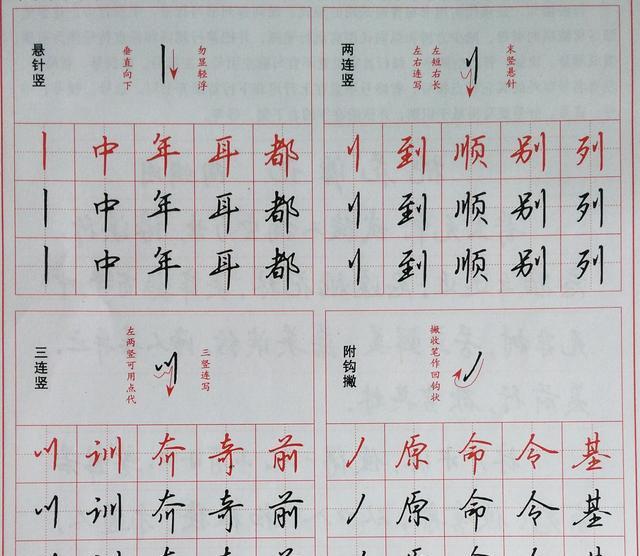 悬针竖
垂直向下
勿显轻浮
中 年 耳 都
中 年 耳 都
中 年 耳 都
两连竖
左右连写
左短右长
末竖悬针
到 顺 别 列
到 顺 别 列
到 顺 别 列
三连竖
左两竖可用点代
三竖连写
训 奇 前
训 奇 前
附钩撇
撇收笔作回钩状
原 命 令 基
原 命 令 基